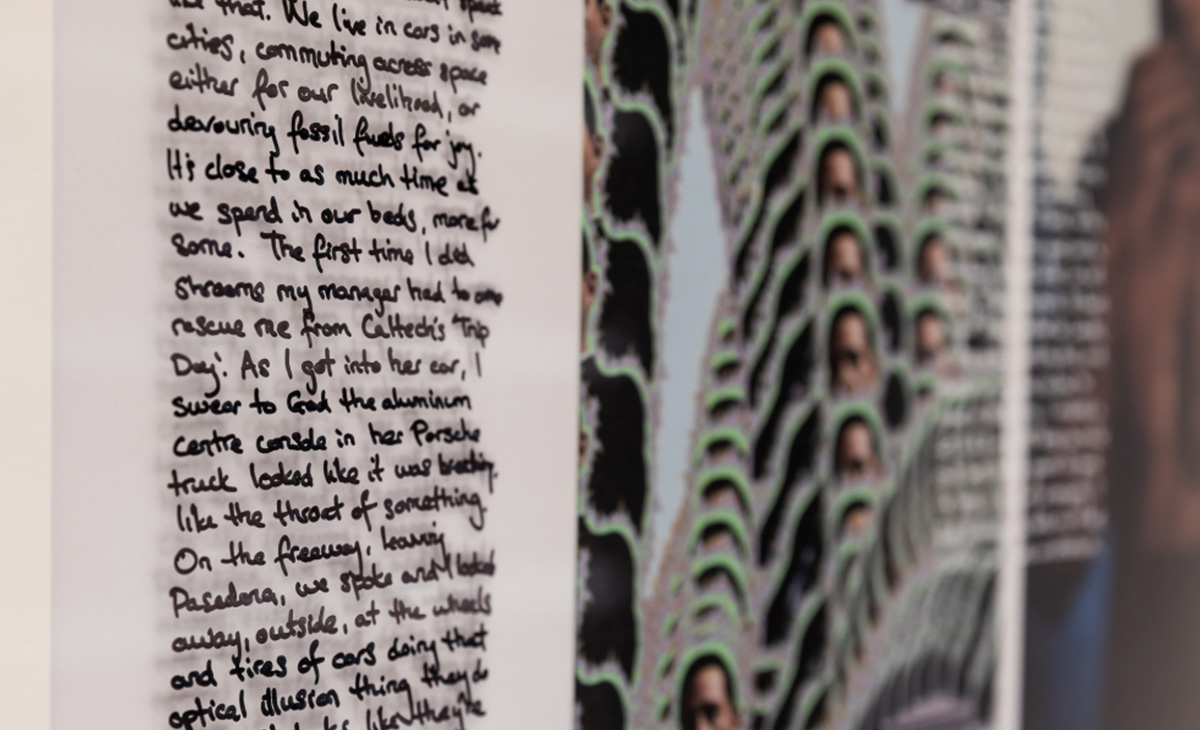 like that. We live in cars in some
cities, commuting across space
either for our livelihood, or
devouring fossil fuels for joy.
It's close to as much time as
we spend in our beds, more for
some. The first time I did
shrooms my manager had to come
rescue me from Caltech's 'Trip
Day'. As I got into her car, I
swear to God the aluminum
centre console in her Porsche
truck looked like it was breathing.
like the throat of something.
On the freeway, leaving
Pasadena, we spoke and I looked
away, outside, at the wheels
and tires of cars doing that
optical illusion thing they do
like they're